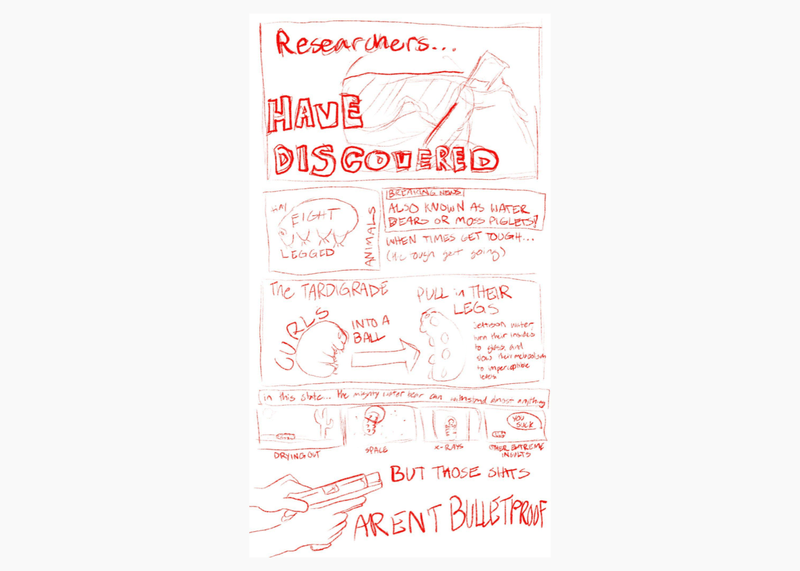 Researchers...
HAVE
DISCOVERED
EIGHT
LEGGED
ANIMALS
BREAKING NEWS
ALSO KNOWN AS WATER
BEARS OR MOSS PIGLETS!
WHEN TIMES GET TOUGH...
(the tough get going)
The TARDIGRADE
CURLS
INTO A
BALL
PULL in THEIR
LEGS
Jettison water,
turn their insides
to glass, and
slow their metabolism
to imperceptible
levels
in this state... the mighty water bear can withstand almost anything
YOU
SUCK
DRYING OUT
SPACE
X-RAYS
OTHER EXTREME
INSULTS
BUT THOSE SHITS
ARENT BULLETPROOF